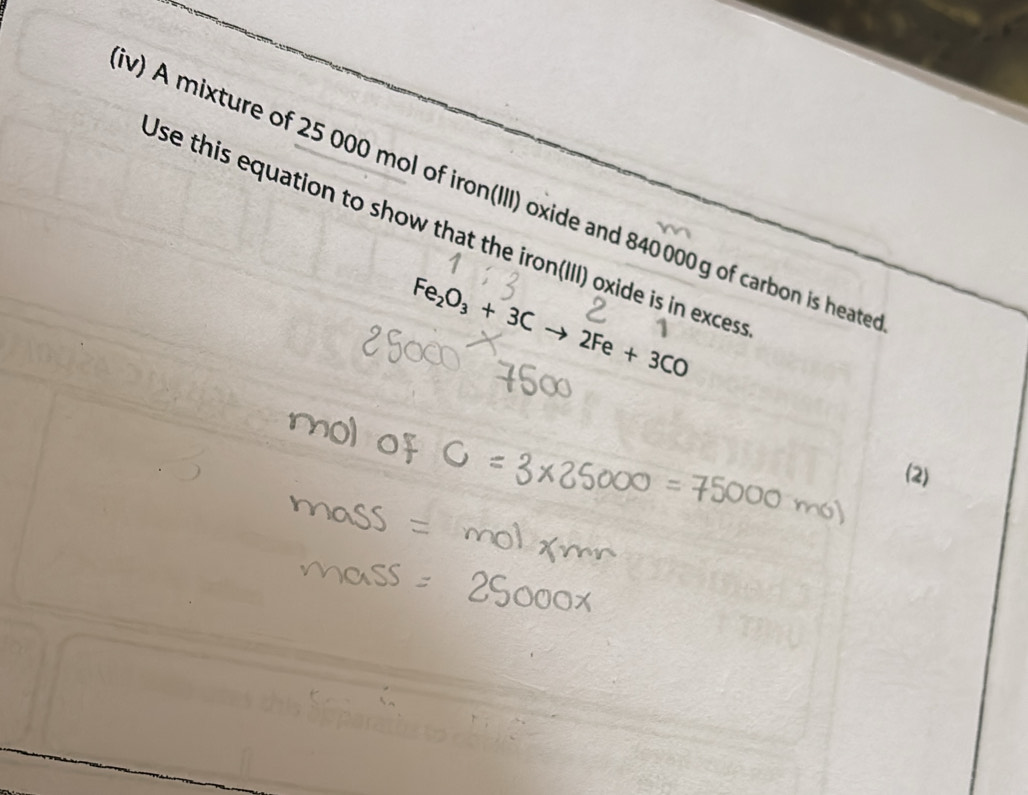 (iv) A mixture of 25 000 mol of iron(III) oxide and 840 000 g of carbon is heated.
m
Use this equation to show that the iron(III) oxide is in excess.
1 : 3 2 1
Fe₂O₃ + 3C → 2Fe + 3CO
25000 x 7500
(2)
mol of C = 3×25000 = 75000 mol
mass = mol x mr
mass = 25000x